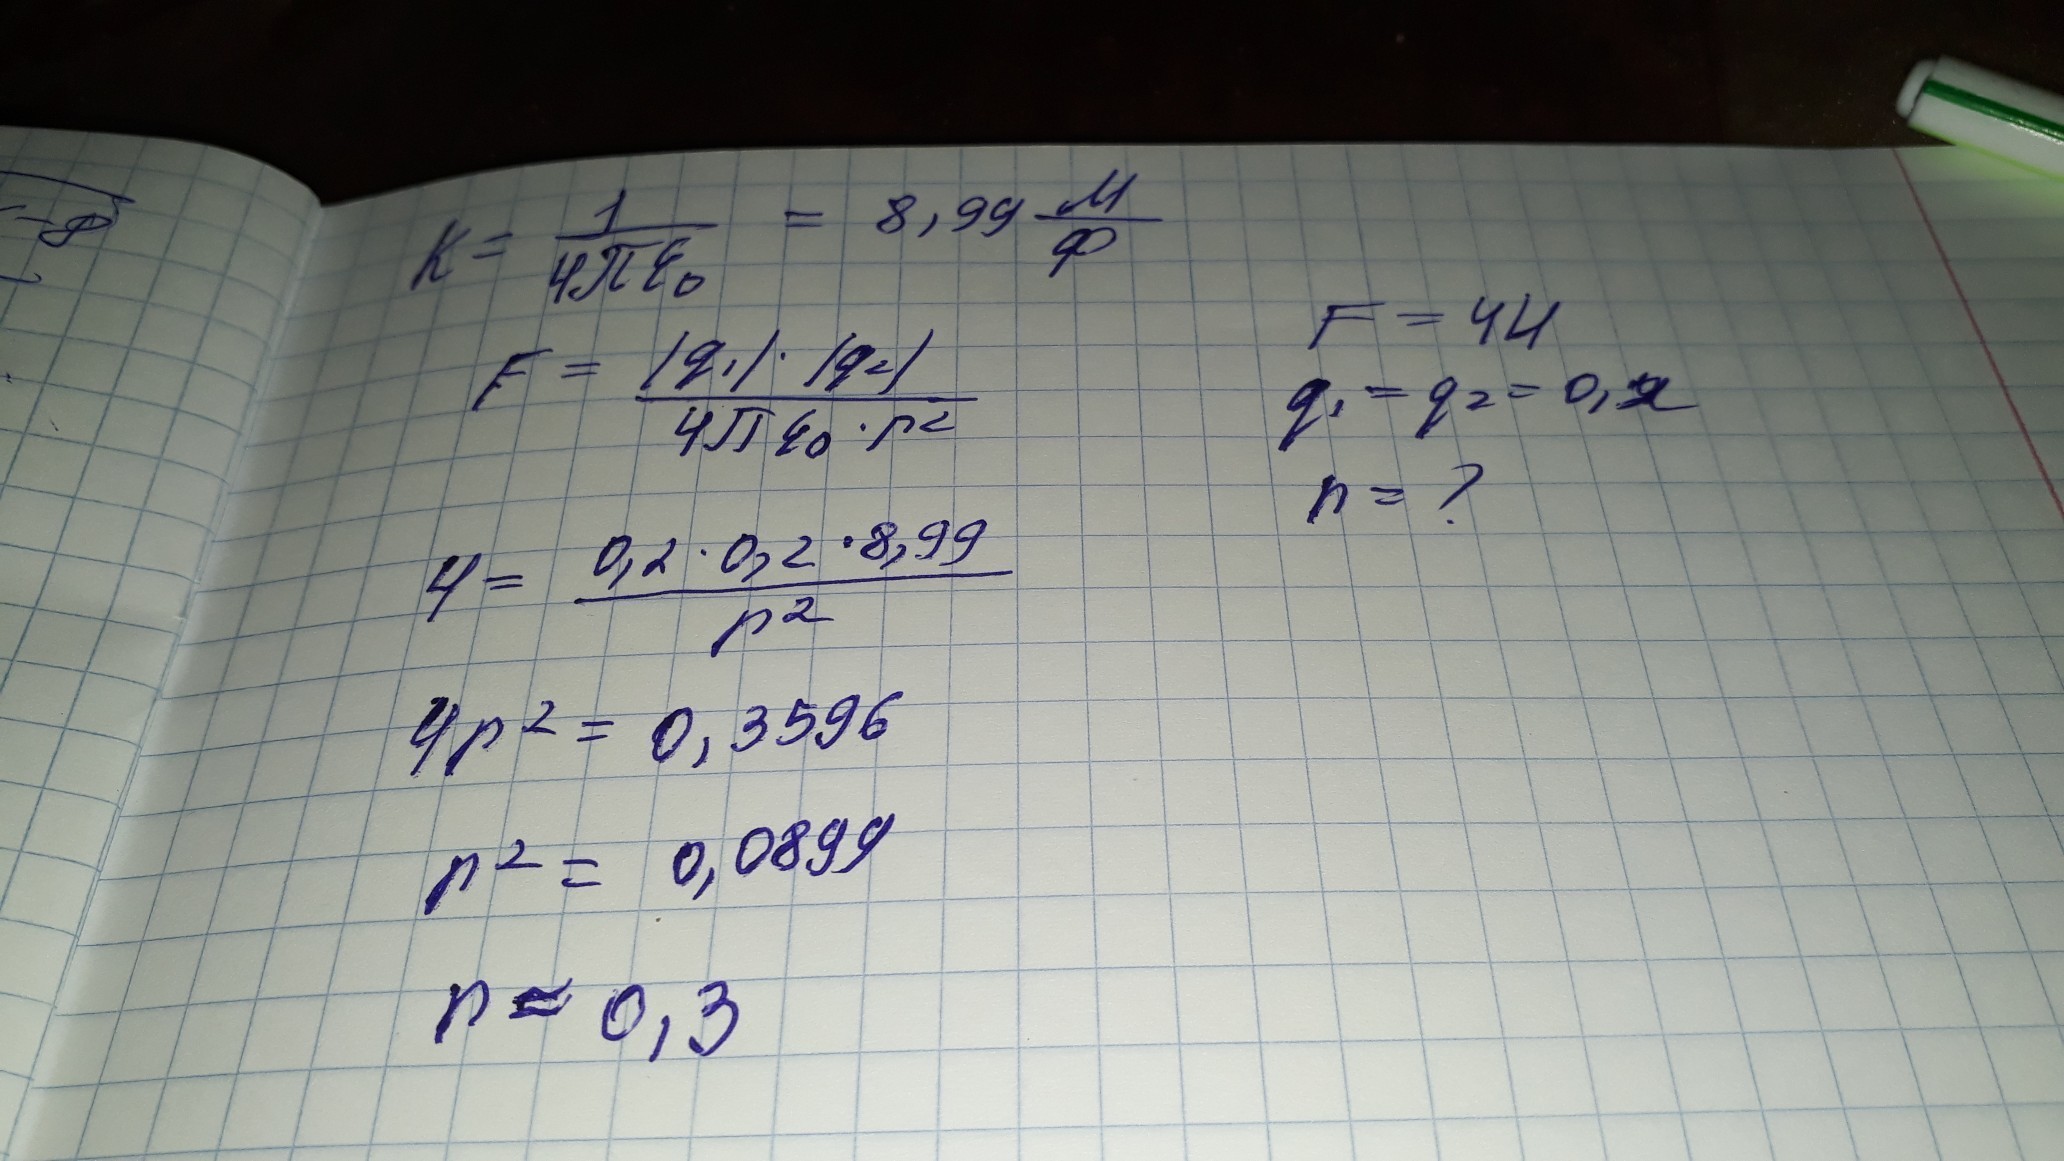 K = 1/4πε₀ = 8,99 м/Ф
F = |q₁|·|q₂| / 4πε₀·r²
4 = 0,2·0,2·8,99 / r²
4r² = 0,3596
r² = 0,0899
r ≈ 0,3
F = 4Н
q₁ = q₂ = 0,2
r = ?